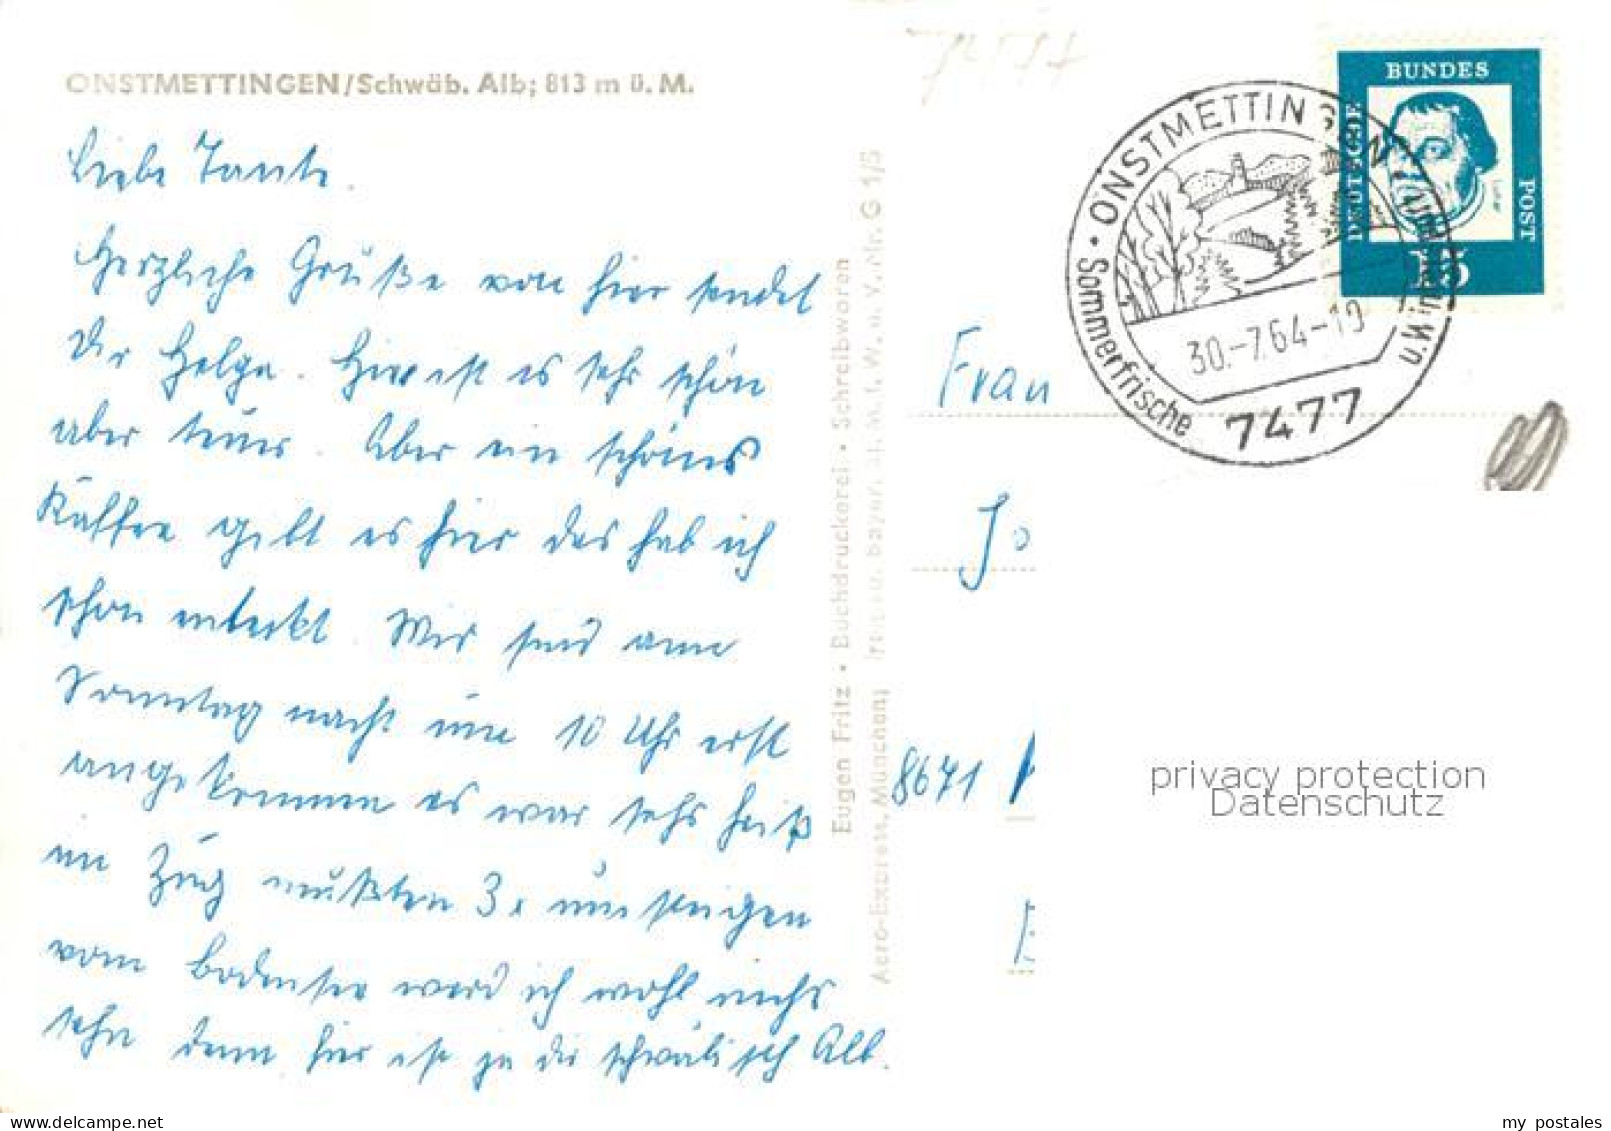 ONSTMETTINGEN/Schwäb. Alb; 813 m ü. M.
Liebe Tante.
Herzliche Grüße von hier sendet
Dir Helga. Hier ist es sehr schön
aber teuer. Aber ein schönes
Kaffee gibt es hier das hab ich
schon entdeckt. Wir sind am
Sonntag nacht um 10 Uhr erst
angekommen es war sehr heiß
im Zug mußten 3x umsteigen
vom Bodensee werd ich wohl nichts
sehn denn hier ist ja die schwäbisch Alb.
Eugen Fritz • Buchdruckerei • Schreibwaren
Aero-Express, München
BUNDES
DEUTSCHE
POST
Luther
15
• ONSTMETTINGEN •
Sommerfrische
30.-7.64-19
7477
Frau
Jo
8671
privacy protection
Datenschutz
www.delcampe.net
my_postales